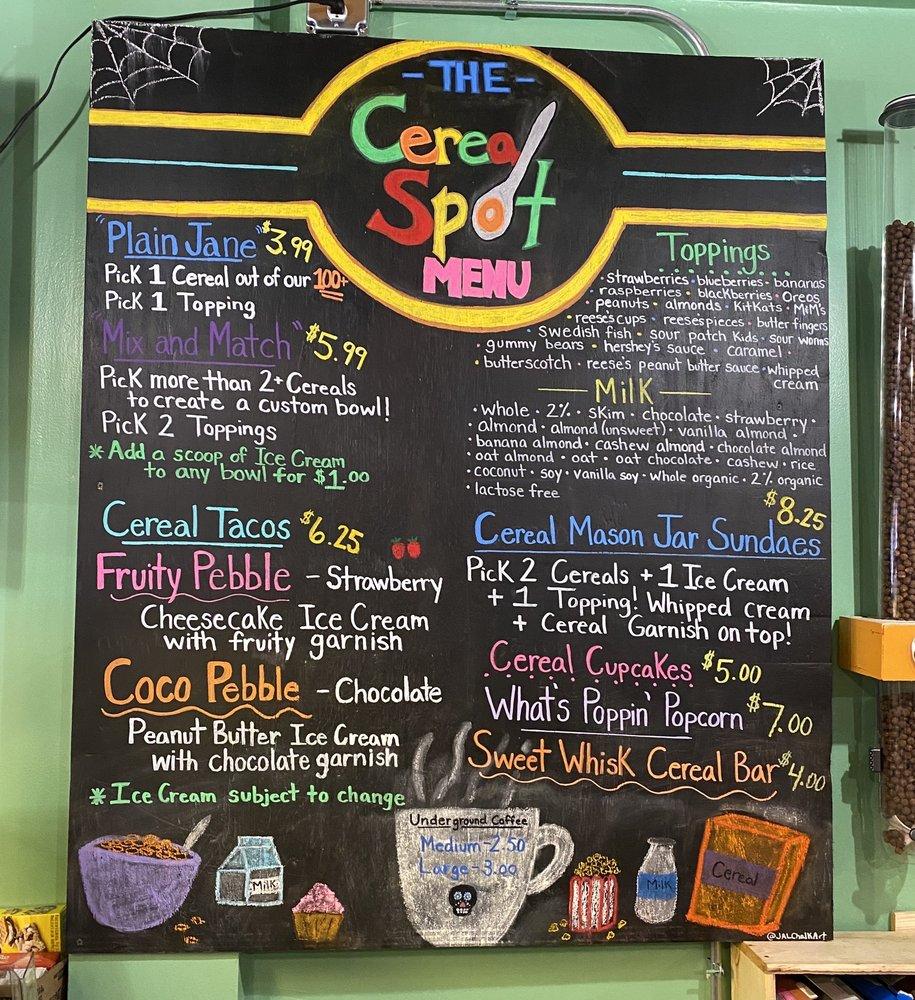 - THE -
Cereal
Spot
MENU
"Plain Jane" $3.99
Pick 1 Cereal out of our 100+
Pick 1 Topping
"Mix and Match" $5.99
Pick more than 2+ Cereals
to create a custom bowl!
Pick 2 Toppings
*Add a scoop of Ice Cream
to any bowl for $1.00
Cereal Tacos $6.25
Fruity Pebble - Strawberry
Cheesecake Ice Cream
with fruity garnish
Coco Pebble - Chocolate
Peanut Butter Ice Cream
with chocolate garnish
*Ice Cream subject to change
Toppings
• strawberries • blueberries • bananas
• raspberries • blackberries • Oreos
peanuts • almonds • KitKats • M&M's
• reese's cups • reese's pieces • butter fingers
• Swedish fish • sour patch kids • sour worms
• gummy bears • hershey's sauce • caramel •
• butterscotch • reese's peanut butter sauce • whipped
cream
Milk
• whole • 2% • skim • chocolate • strawberry •
• almond • almond (unsweet) • vanilla almond •
• banana almond • cashew almond • chocolate almond
• oat almond • oat • oat chocolate • cashew • rice
• coconut • soy • vanilla soy • whole organic • 2% organic
• lactose free
$8.25
Cereal Mason Jar Sundaes
Pick 2 Cereals + 1 Ice Cream
+ 1 Topping! Whipped cream
+ Cereal Garnish on top!
Cereal Cupcakes $5.00
What's Poppin' Popcorn $7.00
Sweet Whisk Cereal Bar $4.00
Underground Coffee
Medium - 2.50
Large - 3.00
Milk
Milk
Cereal
@JALChalkArt